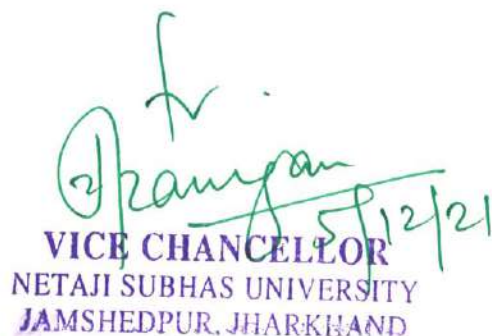 5/12/21
VICE CHANCELLOR
NETAJI SUBHAS UNIVERSITY
JAMSHEDPUR, JHARKHAND